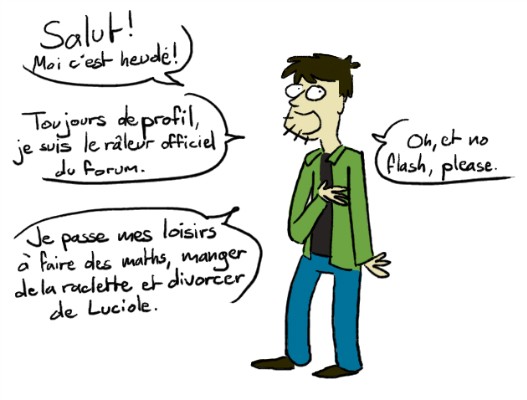 Salut!
Moi c'est heudé!
Toujours de profil,
je suis le râleur officiel
du forum.
Oh, et no
flash, please.
Je passe mes loisirs
à faire des maths, manger
de la raclette et divorcer
de Luciole.